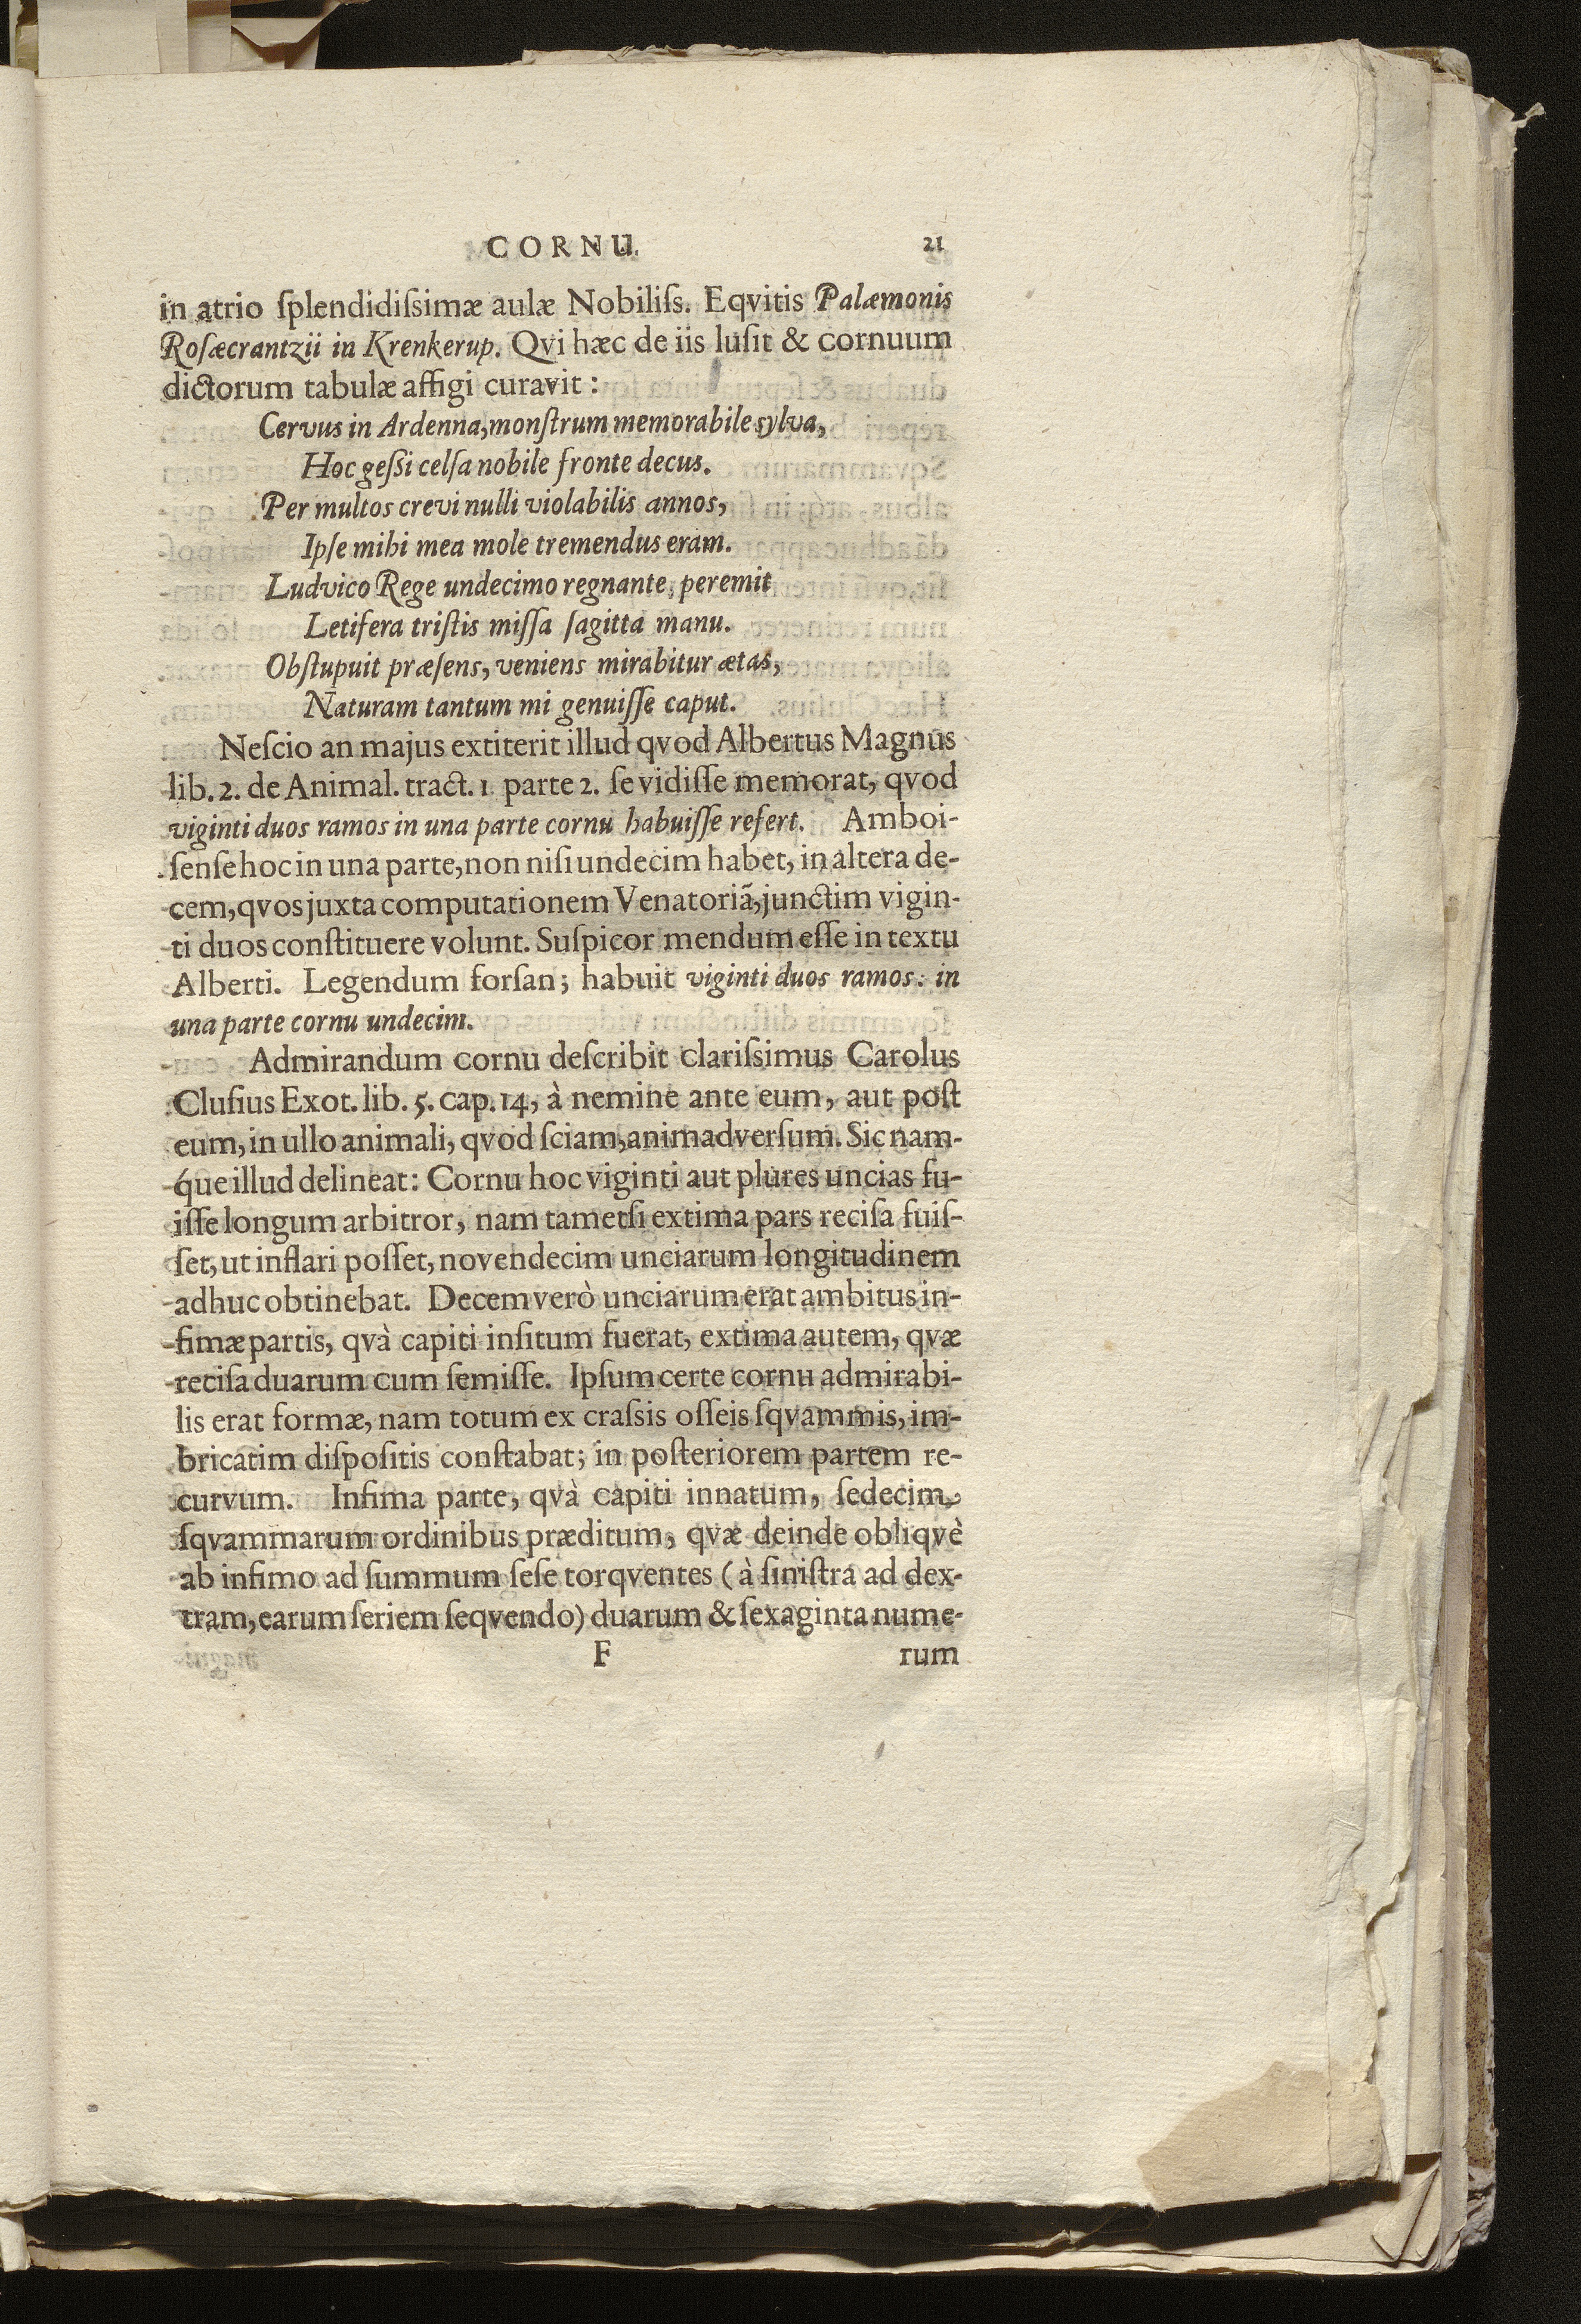 CORNU. 21
in atrio ſplendidiſsimæ aulæ Nobiliſs. Eqvitis Palæmonis
Roſæcrantzii in Krenkerup. Qvi hæc de iis luſit & cornuum
dictorum tabulæ affigi curavit:
Cervus in Ardenna, monſtrum memorabile sylva,
Hoc geſsi celſa nobile fronte decus.
Per multos crevi nulli violabilis annos,
Ipſe mihi mea mole tremendus eram.
Ludvico Rege undecimo regnante, peremit
Letifera triſtis miſſa ſagitta manu.
Obſtupuit præſens, veniens mirabitur ætas,
Naturam tantum mi genuiſſe caput.
Neſcio an majus extiterit illud qvod Albertus Magnus
lib. 2. de Animal. tract. 1 parte 2. ſe vidiſſe memorat, qvod
viginti duos ramos in una parte cornu habuiſſe refert. Amboi-
ſenſe hoc in una parte, non niſi undecim habet, in altera de-
cem, qvos juxta computationem Venatoriã, junctim vigin-
ti duos conſtituere volunt. Suſpicor mendum eſſe in textu
Alberti. Legendum forſan; habuit viginti duos ramos: in
una parte cornu undecim.
Admirandum cornu deſcribit clariſsimus Carolus
Cluſius Exot. lib. 5. cap. 14, à nemine ante eum, aut poſt
eum, in ullo animali, qvod ſciam, animadverſum. Sic nam-
q́ue illud delineat: Cornu hoc viginti aut plures uncias fu-
iſſe longum arbitror, nam tametſi extima pars reciſa fuiſ-
ſet, ut inflari poſſet, novendecim unciarum longitudinem
adhuc obtinebat. Decem verò unciarum erat ambitus in-
fimæ partis, qvà capiti inſitum fuerat, extima autem, qvæ
reciſa duarum cum ſemiſſe. Ipſum certe cornu admirabi-
lis erat formæ, nam totum ex craſsis oſſeis ſqvammis, im-
bricatim diſpoſitis conſtabat; in poſteriorem partem re-
curvum. Infima parte, qvà capiti innatum, ſedecim
ſqvammarum ordinibus præditum, qvæ deinde obliqvè
ab infimo ad ſummum ſeſe torqventes (à ſiniſtra ad dex-
tram, earum ſeriem ſeqvendo) duarum & ſexaginta nume-
F rum